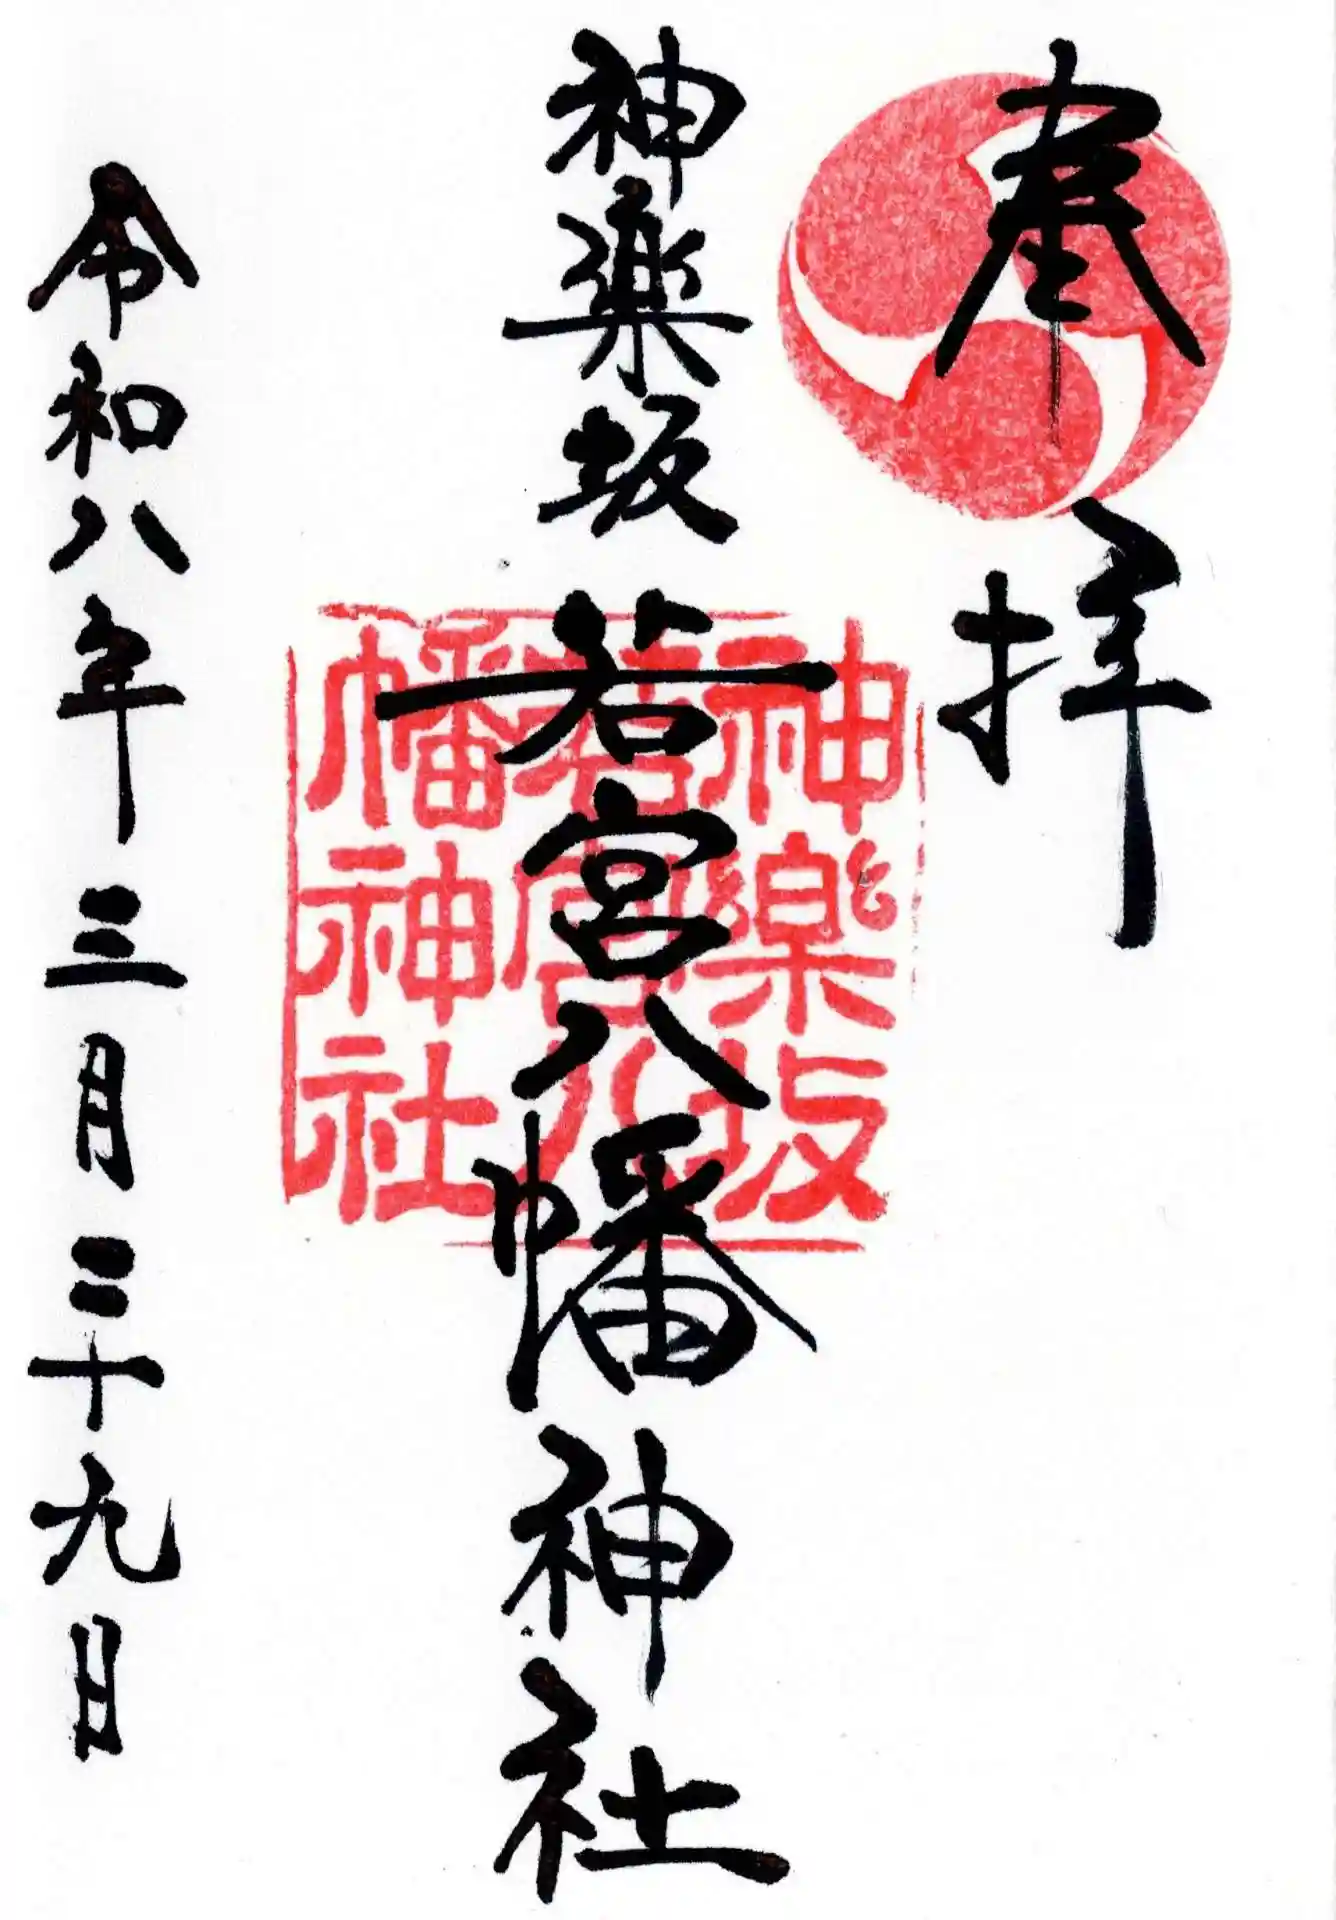 奉拝
神楽坂若宮八幡神社
神樂坂
若宮八
幡神社
令和八年三月二十九日